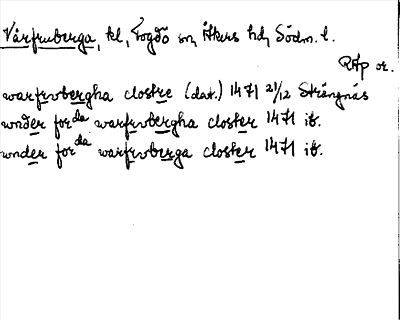 Vårfruberga, kl, Fogdö sn, Åkers hd, Södm. l.
RAp or.
warfrvbergha clostre (dat.) 1471 21/12 Strängnäs
wnder forda warfrvbergha closter 1471 ib.
wnder forda warfrvberga closter 1471 ib.